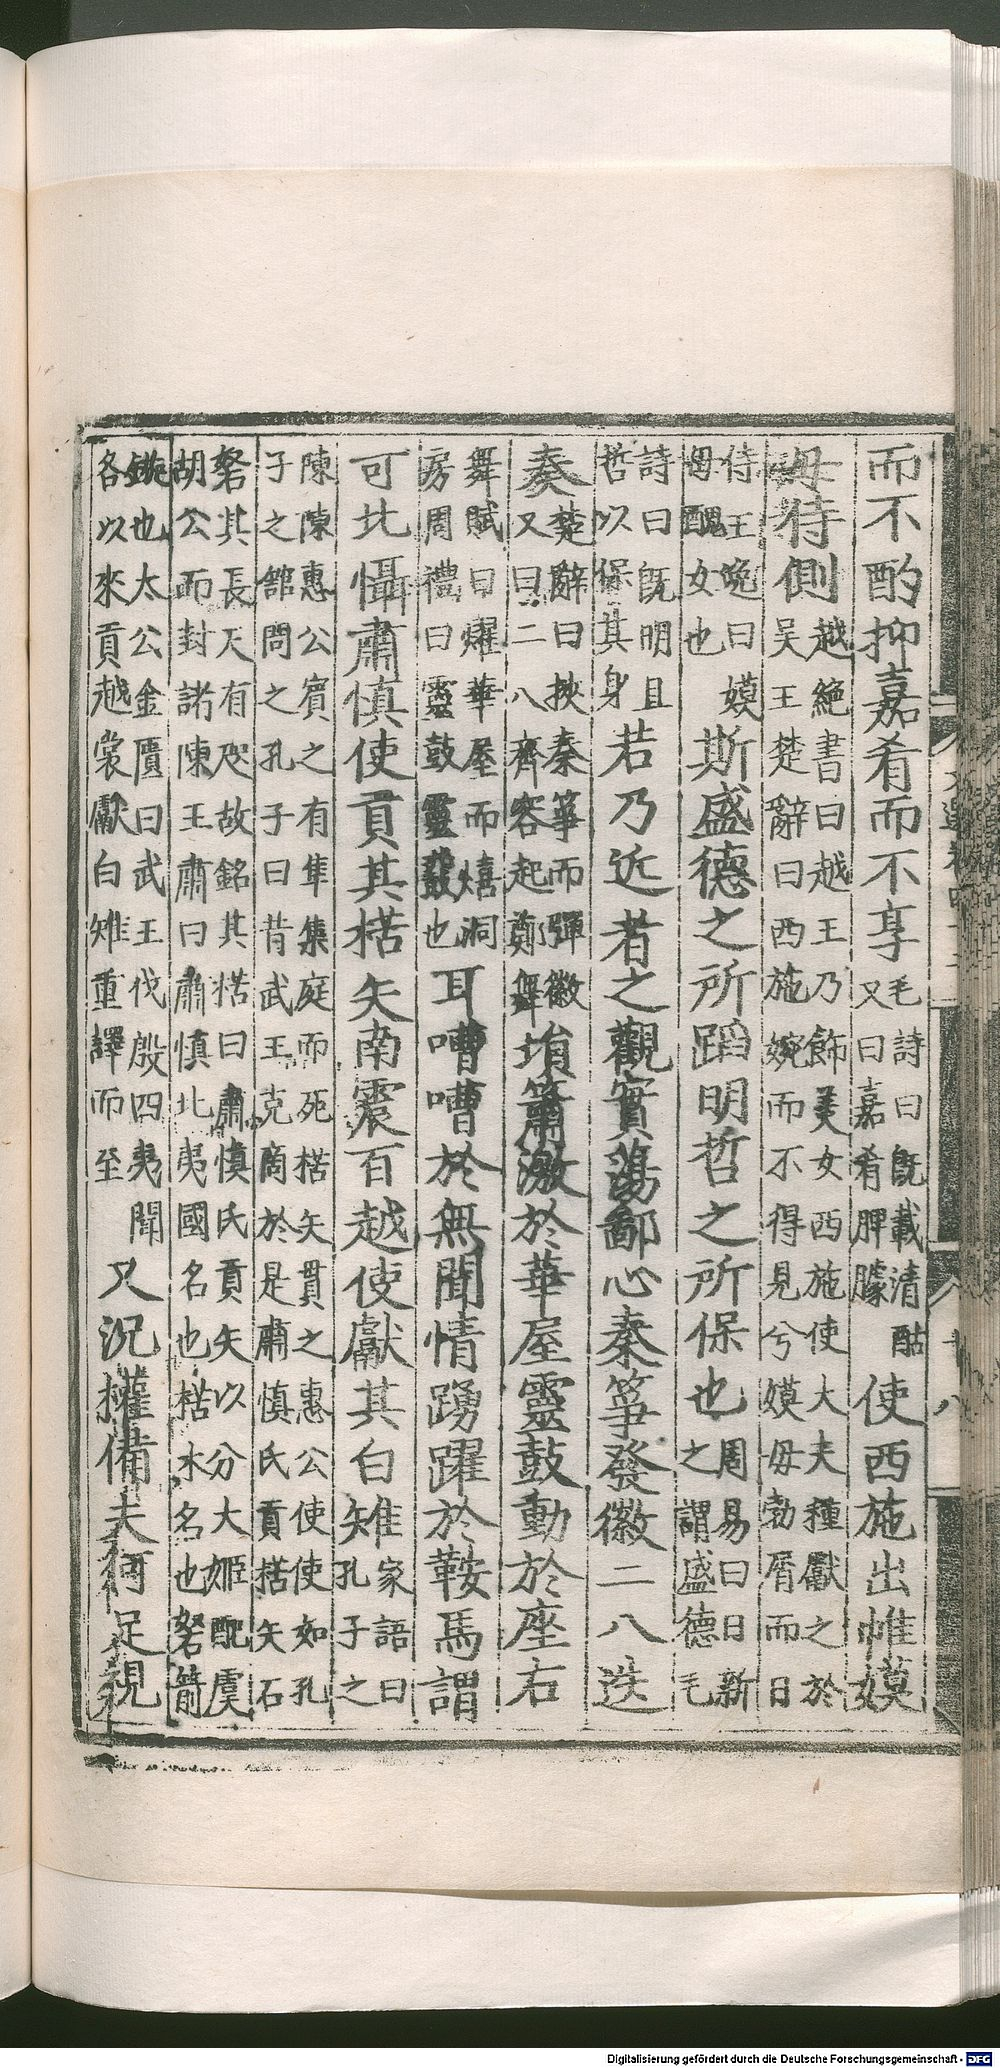 而不酌抑嘉肴而不享毛詩曰既載清酤又曰嘉肴脾臄使西施出帷嫫
母侍側越絕書曰越王乃飾美女西施使大夫種獻之於吳王楚辭曰西施婉而不得見兮嫫母勃屑而日
侍王逸曰嫫母醜女也斯盛德之所蹈明哲之所保也周易曰日新之謂盛德毛
詩曰既明且哲以保其身若乃近者之觀實蕩鄙心秦箏發徽二八迭
奏楚辭曰挾秦箏而彈徽又曰二八齊容起鄭舞塤簫激於華屋靈鼓動於座右
舞賦曰燿華屋而熺洞房周禮曰靈鼓靈鼗也耳嘈嘈於無聞情踴躍於鞍馬謂
可比懾肅慎使貢其楛矢南震百越使獻其白雉家語曰孔子之
陳陳惠公賓之有隼集庭而死楛矢貫之惠公使使如孔子之館問之孔子曰昔武王克商於是肅慎氏貢楛矢石
砮其長尺有咫故銘其楛曰肅慎氏貢矢以分大姬配虞胡公而封諸陳王肅曰肅慎北夷國名也楛木名也砮箭
鏃也太公金匱曰武王伐殷四夷聞各以來貢越裳獻白雉重譯而至又況權備夫何足視
Digitalisierung gefördert durch die Deutsche Forschungsgemeinschaft - DFG